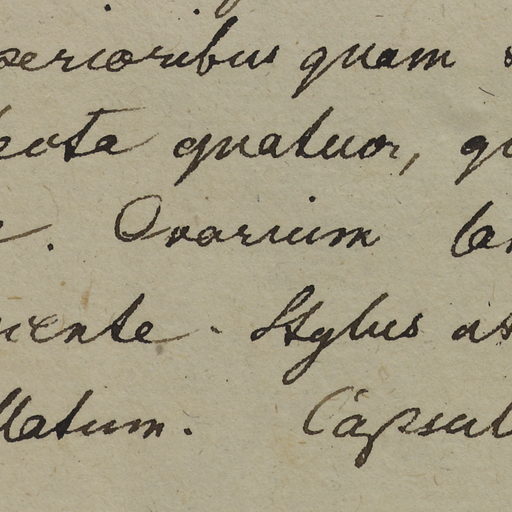 perioribus quam
lecta quatuor, qu
. Ovarium lan
iente. Stylus at
llatum. Capsul